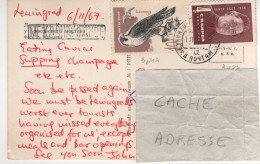 Leningrad 6/11/67.
Eating Caviar
Supping champagne
etc. etc.
Soon be pissed again
We must be Leningrads
worst ever tourists
having missed everything
organised for us, except
meals and bar openings.
See you Soon John
CACHE
ADRESSE